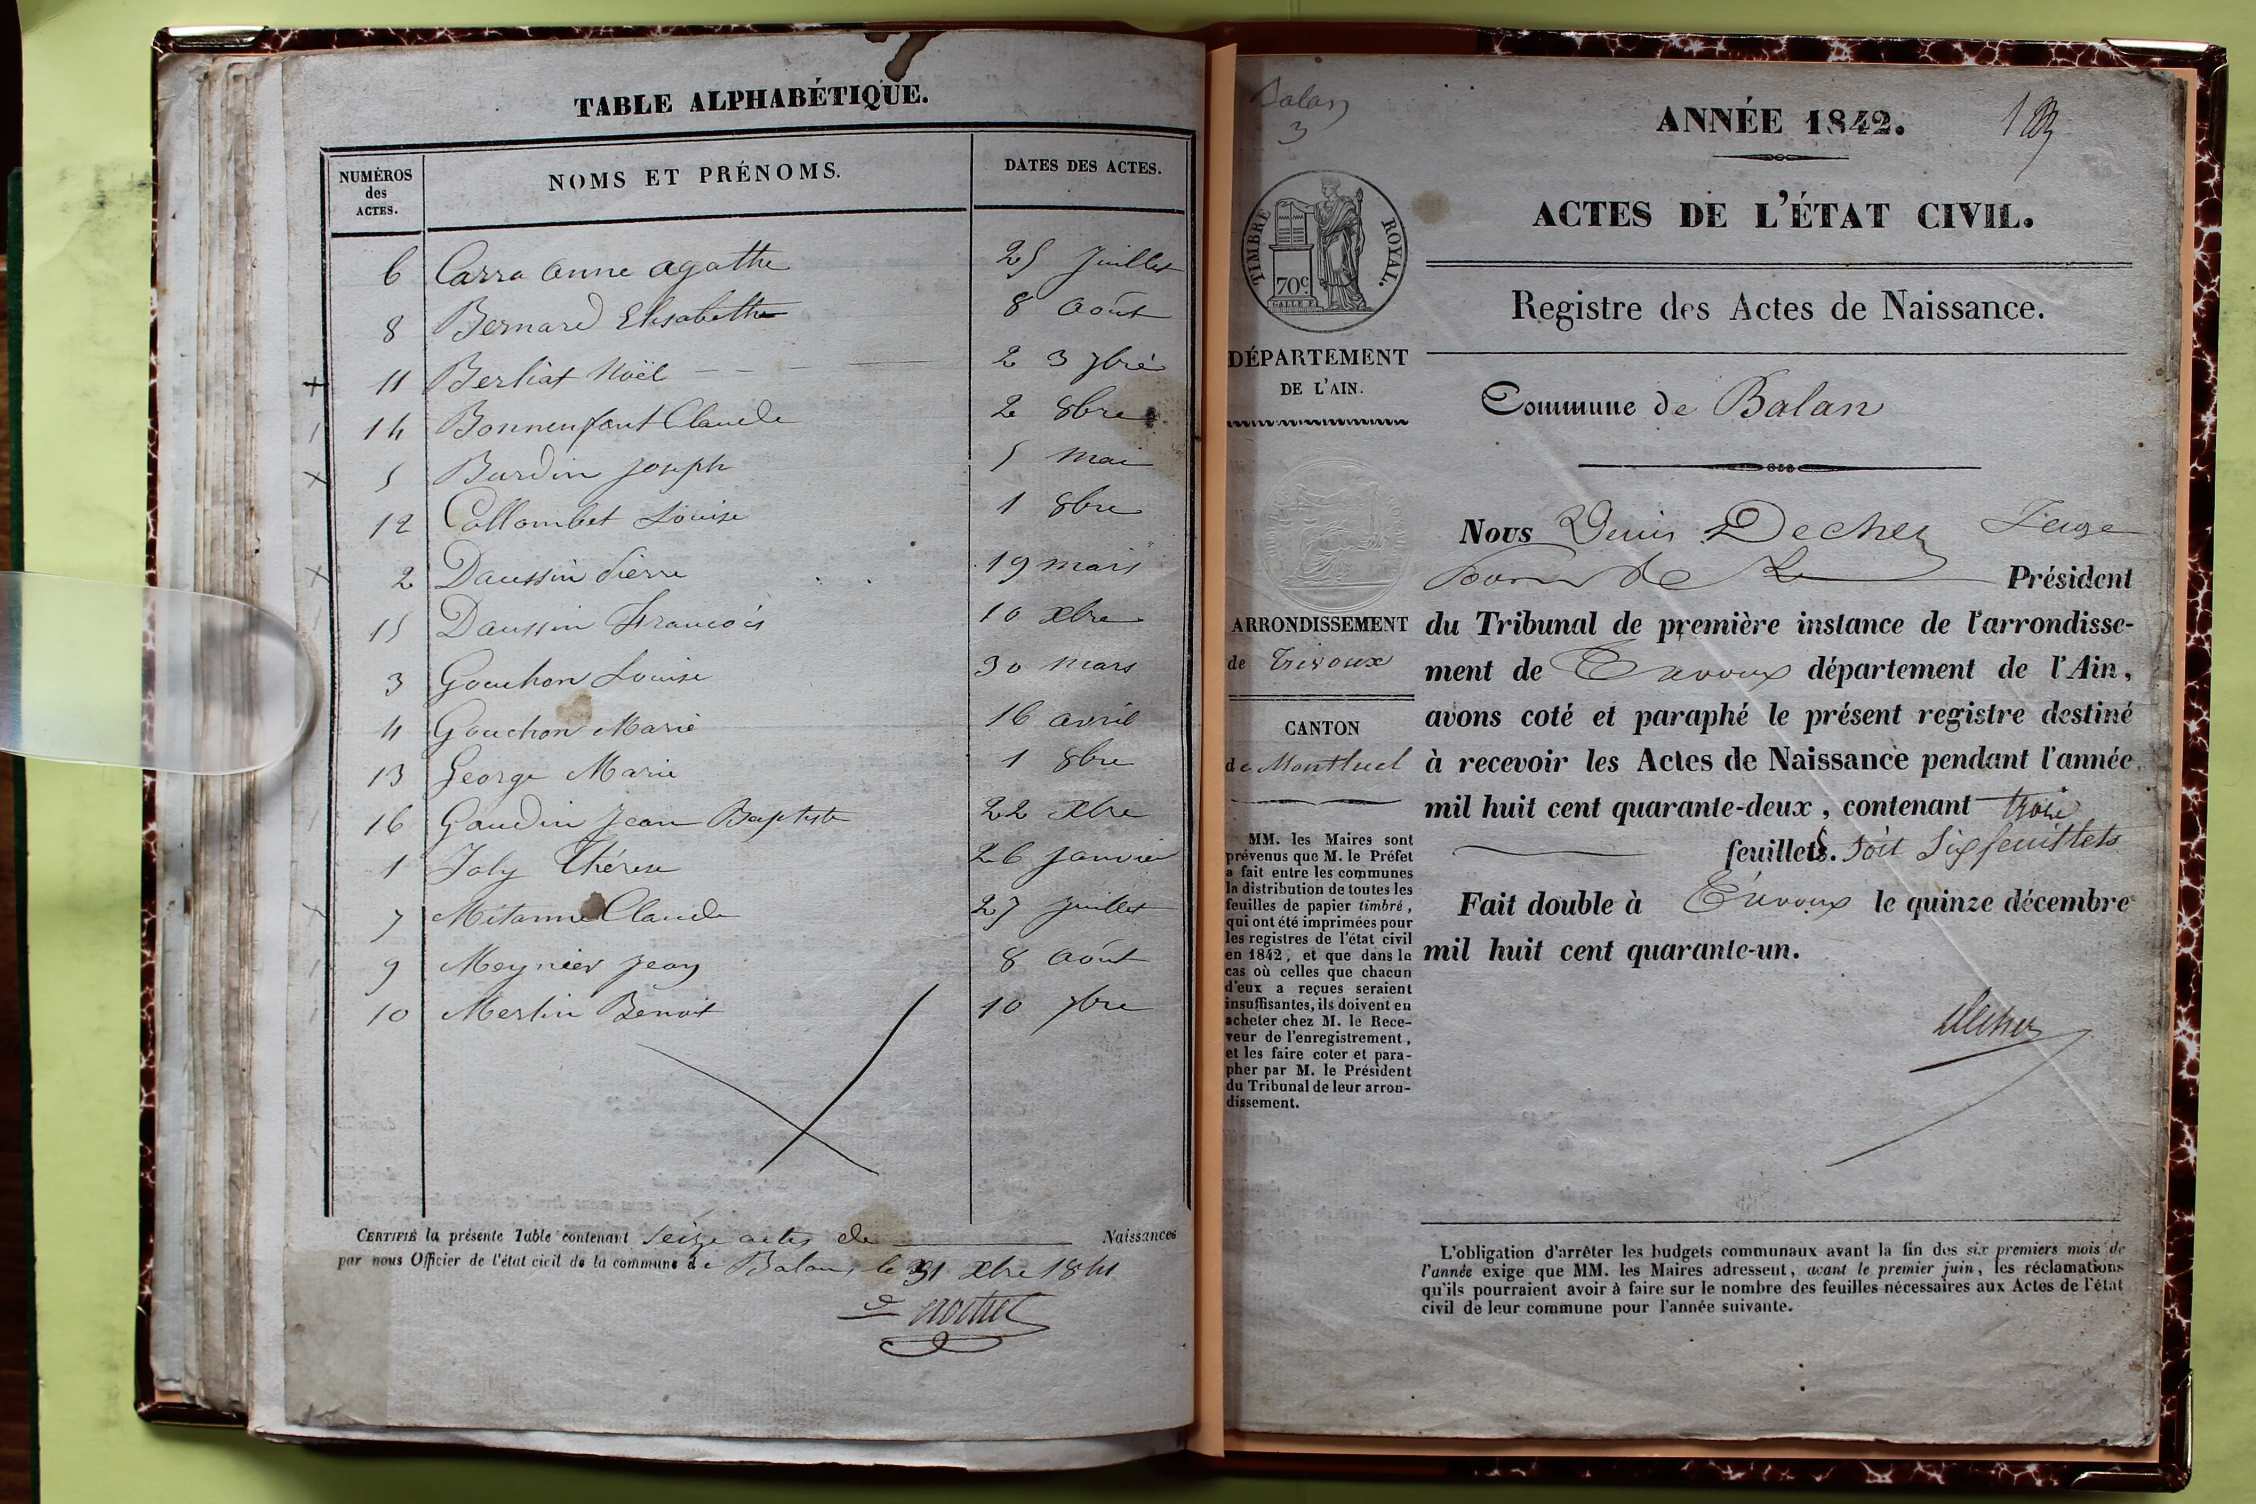 TABLE ALPHABÉTIQUE.
NUMÉROS des ACTES. NOMS ET PRÉNOMS. DATES DES ACTES.
6 Carra anne agathe 25 juillet
8 Bernard Elisabethe 8 août
11 Berliat Noël 23 7bre
14 Bonnenfant Claude 2 8bre
5 Burdin joseph 5 mai
12 Collombet Louise 1 8bre
2 Daussin Pierre 19 mars
15 Daussin François 10 xbre
3 Gouchon Louise 30 mars
4 Gouchon Marie 16 avril
13 George Marie 1 8bre
16 Gaudin Jean Baptiste 22 xbre
1 Joly Thérèse 26 janvier
7 Mitanne Claude 27 juillet
9 Meynier jean 8 août
10 Merlin Benoit 10 7bre
CERTIFIÉ la présente Table contenant seize actes de Naissances
par nous Officier de l'état civil de la commune de Balan, le 31 xbre 1841
Balan
3
ANNÉE 1842.
ACTES DE L'ÉTAT CIVIL.
TIMBRE ROYAL.
70c
Registre des Actes de Naissance.
DÉPARTEMENT
DE L'AIN.
Commune de Balan
Nous Denis Decher Juge
Président
du Tribunal de première instance de l'arrondisse-
ment de Trévoux département de l'Ain,
avons coté et paraphé le présent registre destiné
à recevoir les Actes de Naissance pendant l'année
mil huit cent quarante-deux, contenant trois
feuillets. soit six feuillets
Fait double à Trévoux le quinze décembre
mil huit cent quarante-un.
Decher
ARRONDISSEMENT
de Trévoux
CANTON
de Montluel
MM. les Maires sont
prévenus que M. le Préfet
a fait entre les communes
la distribution de toutes les
feuilles de papier timbré,
qui ont été imprimées pour
les registres de l'état civil
en 1842, et que dans le
cas où celles que chacun
d'eux a reçues seraient
insuffisantes, ils doivent en
acheter chez M. le Rece-
veur de l'enregistrement,
et les faire coter et para-
pher par M. le Président
du Tribunal de leur arron-
dissement.
L'obligation d'arrêter les budgets communaux avant la fin des six premiers mois de
l'année exige que MM. les Maires adressent, avant le premier juin, les réclamations
qu'ils pourraient avoir à faire sur le nombre des feuilles nécessaires aux Actes de l'état
civil de leur commune pour l'année suivante.